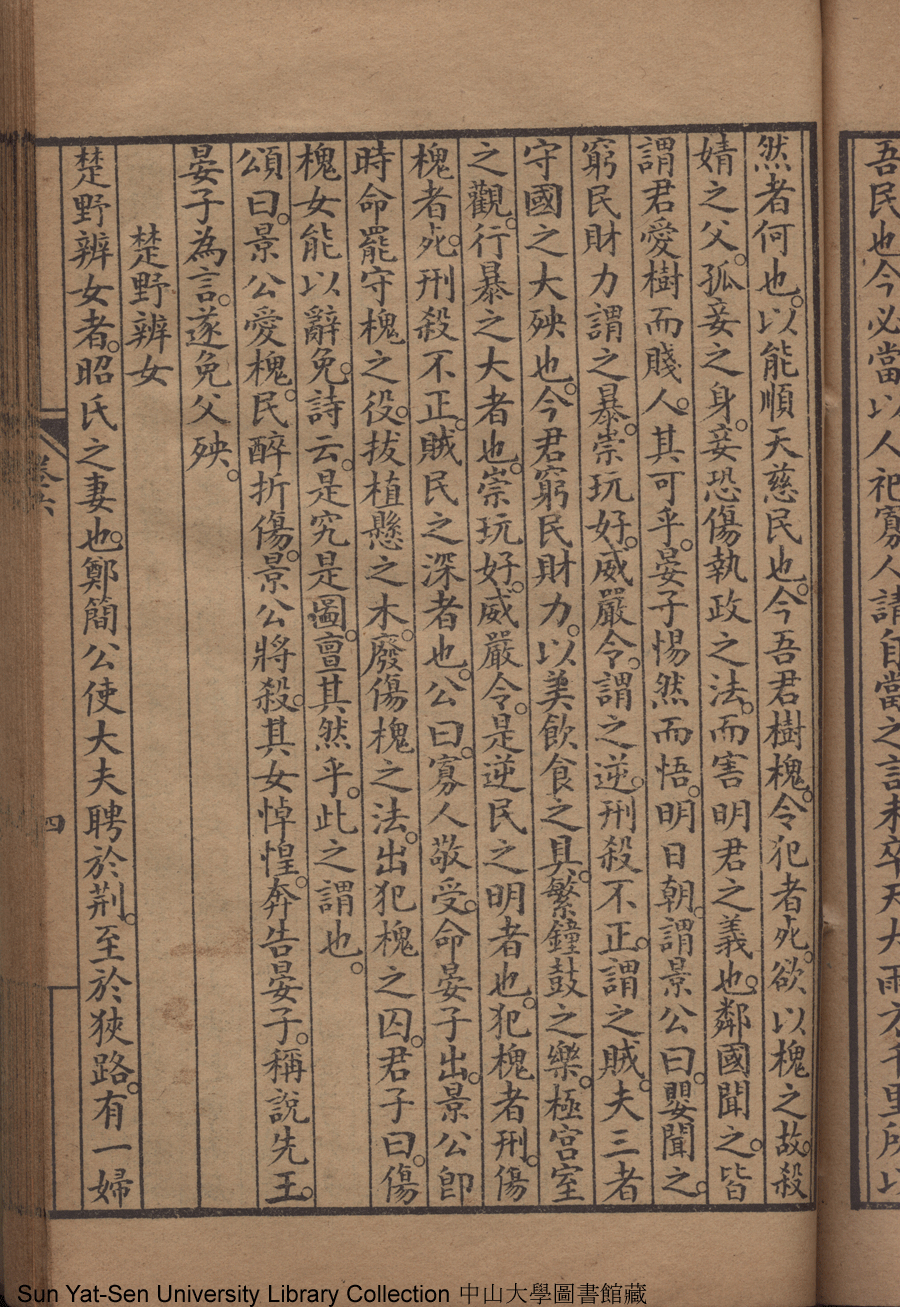 吾民也今必當以人祀寡人請自當之言未卒天大雨方千里所以
然者何也。以能順天慈民也。今吾君樹槐。令犯者死。欲以槐之故。殺
婧之父。孤妾之身。妾恐傷執政之法。而害明君之義也。鄰國聞之。皆
謂君愛樹而賤人。其可乎。晏子惕然而悟。明日朝。謂景公曰。嬰聞之。
窮民財力謂之暴。崇玩好。威嚴令。謂之逆。刑殺不正。謂之賊。夫三者
守國之大殃也。今君窮民財力。以美飲食之具。繁鐘鼓之樂。極宮室
之觀。行暴之大者也。崇玩好。威嚴令。是逆民之明者也。犯槐者刑。傷
槐者死。刑殺不正。賊民之深者也。公曰。寡人敬受命。晏子出。景公卽
時命罷守槐之役。拔植懸之木。廢傷槐之法。出犯槐之囚。君子曰。傷
槐女能以辭免。詩云。是究是圖。亶其然乎。此之謂也。
頌曰。景公愛槐。民醉折傷。景公將殺。其女悼惶。奔告晏子。稱說先王。
晏子為言。遂免父殃。
楚野辨女
楚野辨女者。昭氏之妻也。鄭簡公使大夫聘於荆。至於狹路。有一婦
卷六
四
Sun Yat-Sen University Library Collection 中山大學圖書館藏